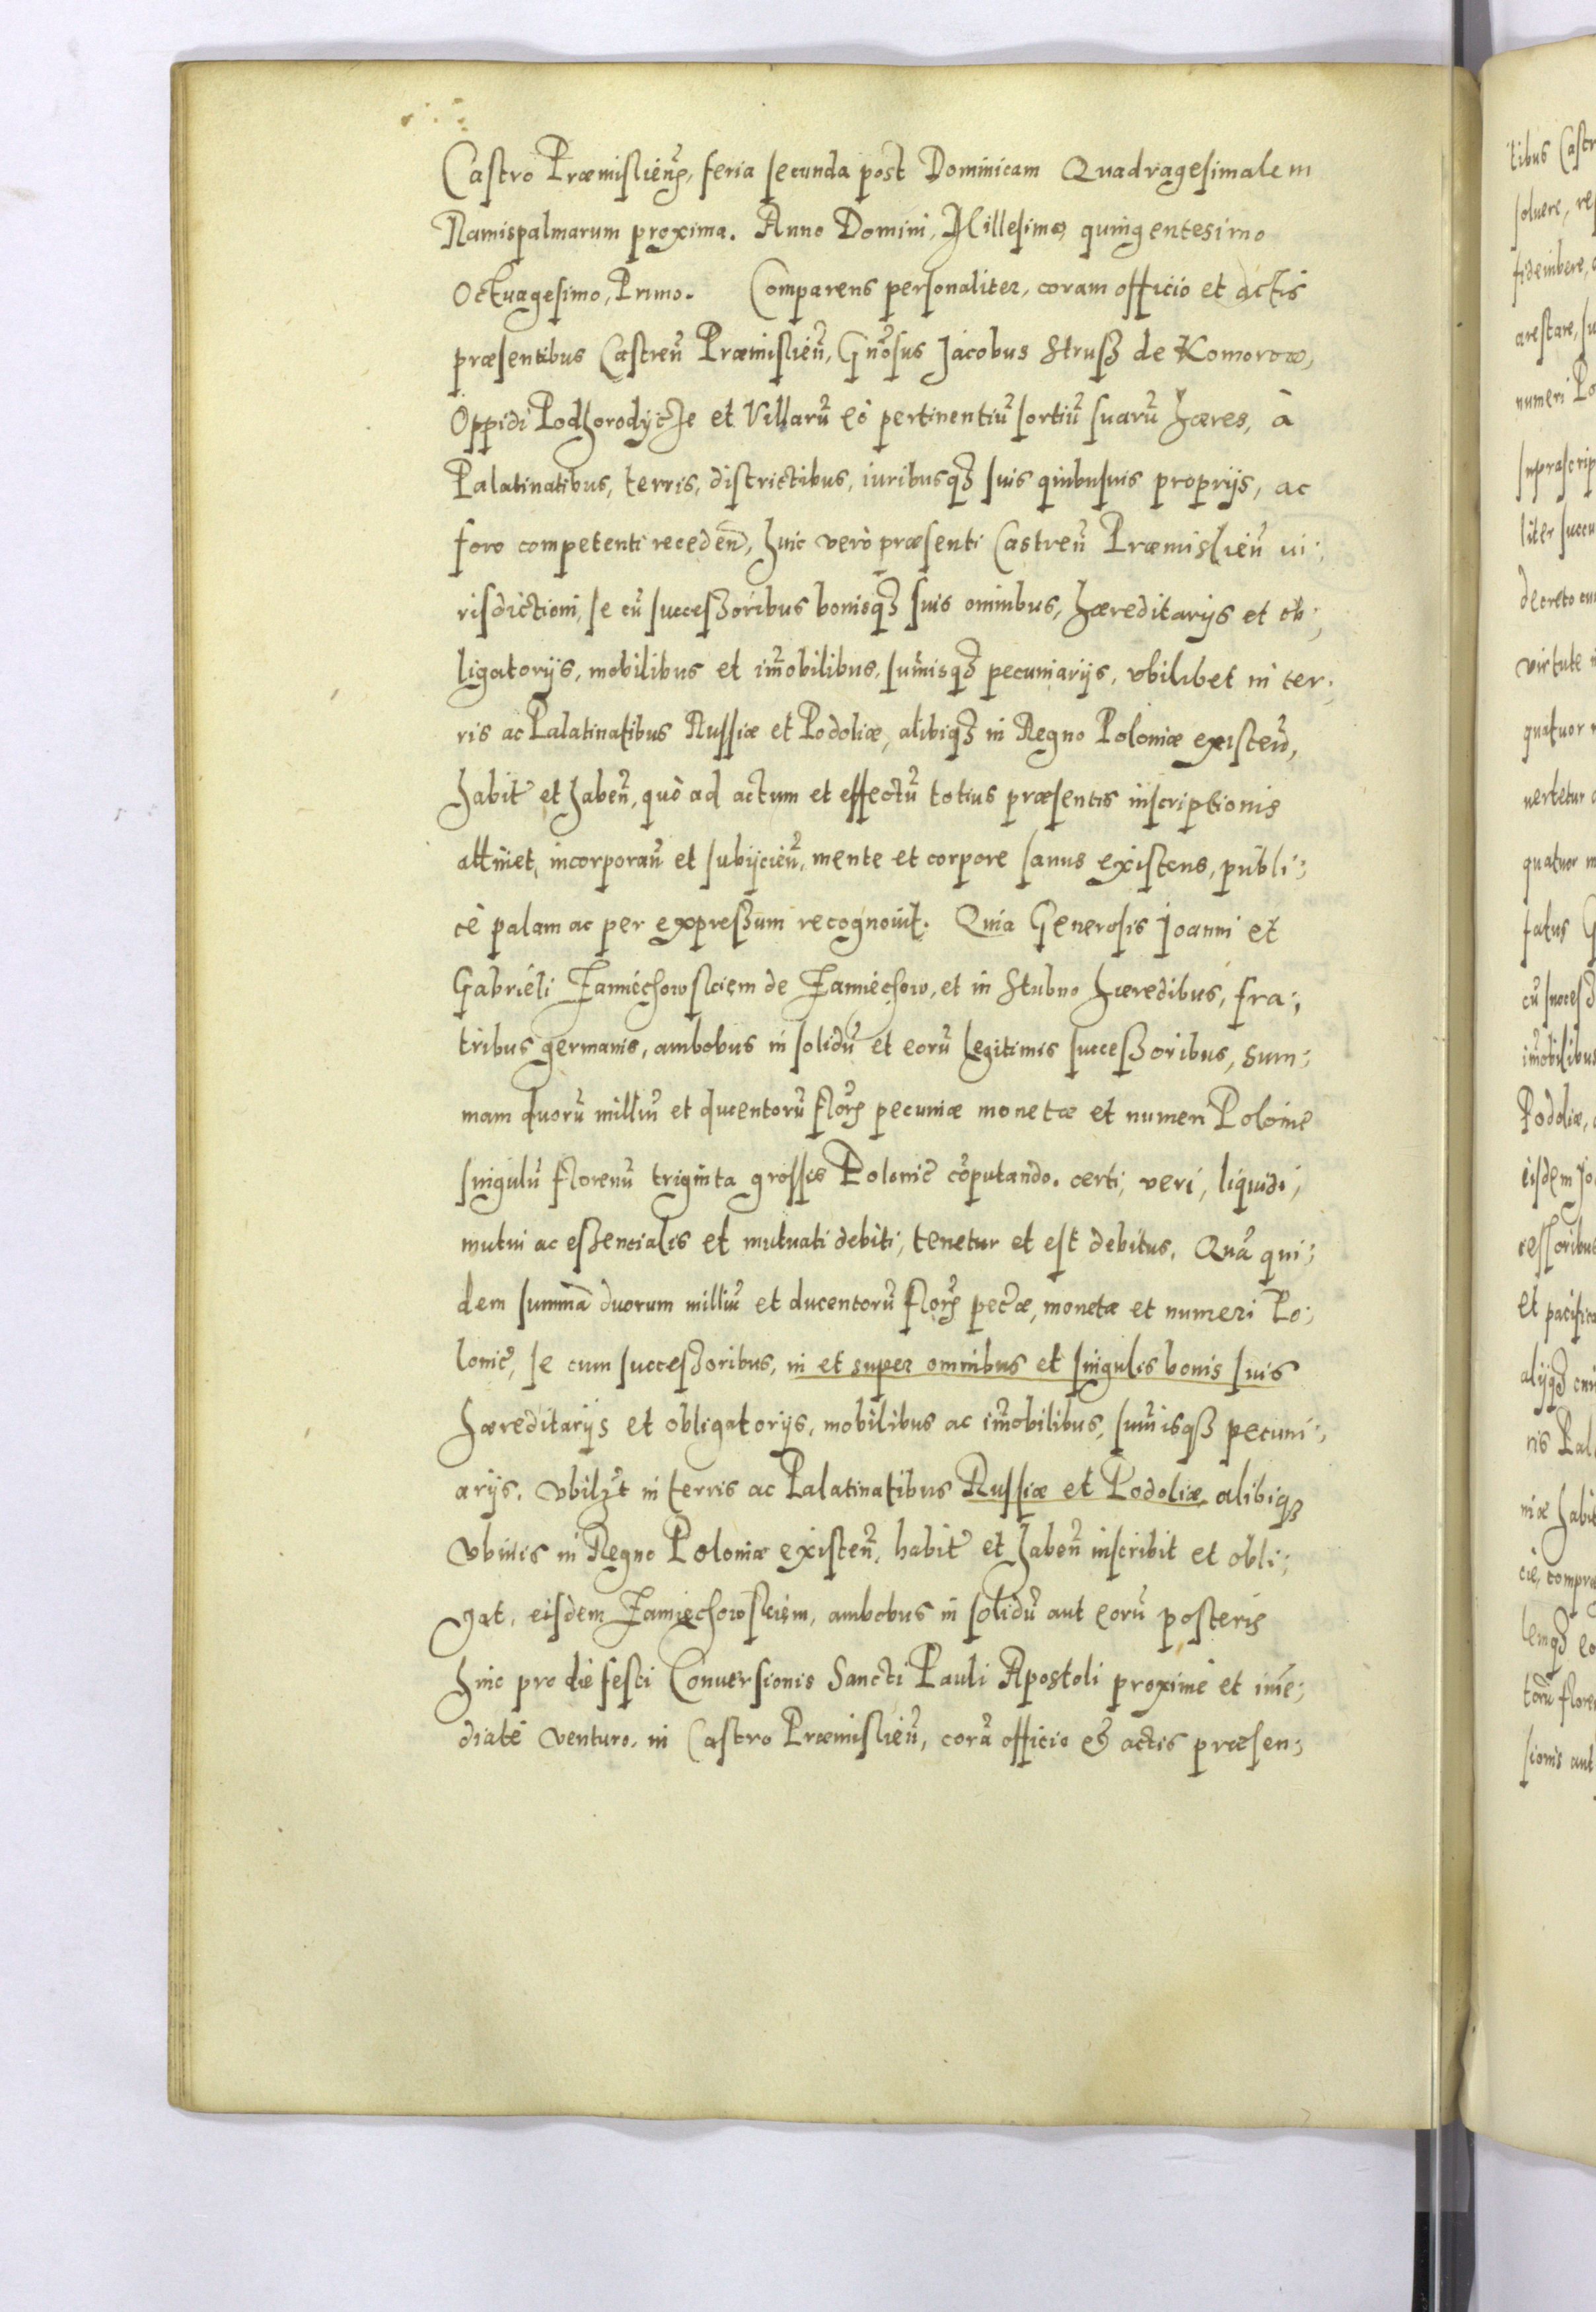 Castro Præmislieñ, feria secunda post Dominicam Quadragesimalem
Ramispalmarum proxima. Anno Domini, Millesimo, quingentesimo
Octuagesimo, Primo. Comparens personaliter, coram officio et actis
præsentibus Castreñ Præmislieñ, Gñosus Jacobus Struß de Komorow,
Oppidi Podhorodÿcze et Villarũ eò pertinentiũ sortiũ suarũ hæres, à
Palatinatibus, terris, districtibus, iuribusqȝ suis quibusuis proprijs, ac
foro competenti recedeñ, huic verò præsenti Castreñ Præmislieñ iu;
risdictioni, se cũ successoribus bonisqȝ suis omnibus, hæreditarijs et ob;
ligatorijs, mobilibus et im̃obilibus, sum̃isqȝ pecuniarijs, vbilibet in ter;
ris ac Palatinatibus Russiæ et Podoliæ, alibiqȝ in Regno Poloniæ existeñ,
habit̃ et habeñ, quò ad actum et effectũ totius præsentis inscriptionis
attinet, incorporañ et subijcieñ, mente et corpore sanus existens, publi;
cè palam ac per expressum recognouit. Quia Generosis Joanni et
Gabrieli Zamiechowsciem de Zamiechow, et in Stubno hæredibus, fra;
tribus germanis, ambobus in solidũ et eorũ legitimis successoribus, sum;
mam duorũ milliũ et ducentorũ flor̃ pecuniæ monetæ et numeri Polonic̃
singulũ florenũ triginta grossis Polonic̃ cõputando. certi, veri, liquidi,
mutui ac essencialis et mutuati debiti, tenetur et est debitus. Quã qui;
dem summã duorum milliũ et ducentorũ flor̃ pec̃æ, monetæ et numeri Po;
lonic̃, se cum successoribus, in et super omnibus et singulis bonis suis
hæreditarijs et obligatorijs, mobilibus ac im̃obilibus, sum̃isqȝ pecuni;
arijs, vbilȝt in terris ac Palatinatibus Russiæ et Podoliæ, alibiqȝ
vbiuis in Regno Poloniæ existeñ, habit̃ et habeñ inscribit et obli;
gat, eisdem Zamiechowsciem, ambobus in solidũ aut eorũ posteris
hinc pro die festi Conuersionis Sancti Pauli Apostoli proximè et im̃e;
diatè venturo, in Castro Præmislieñ, corã officio et actis præsen;